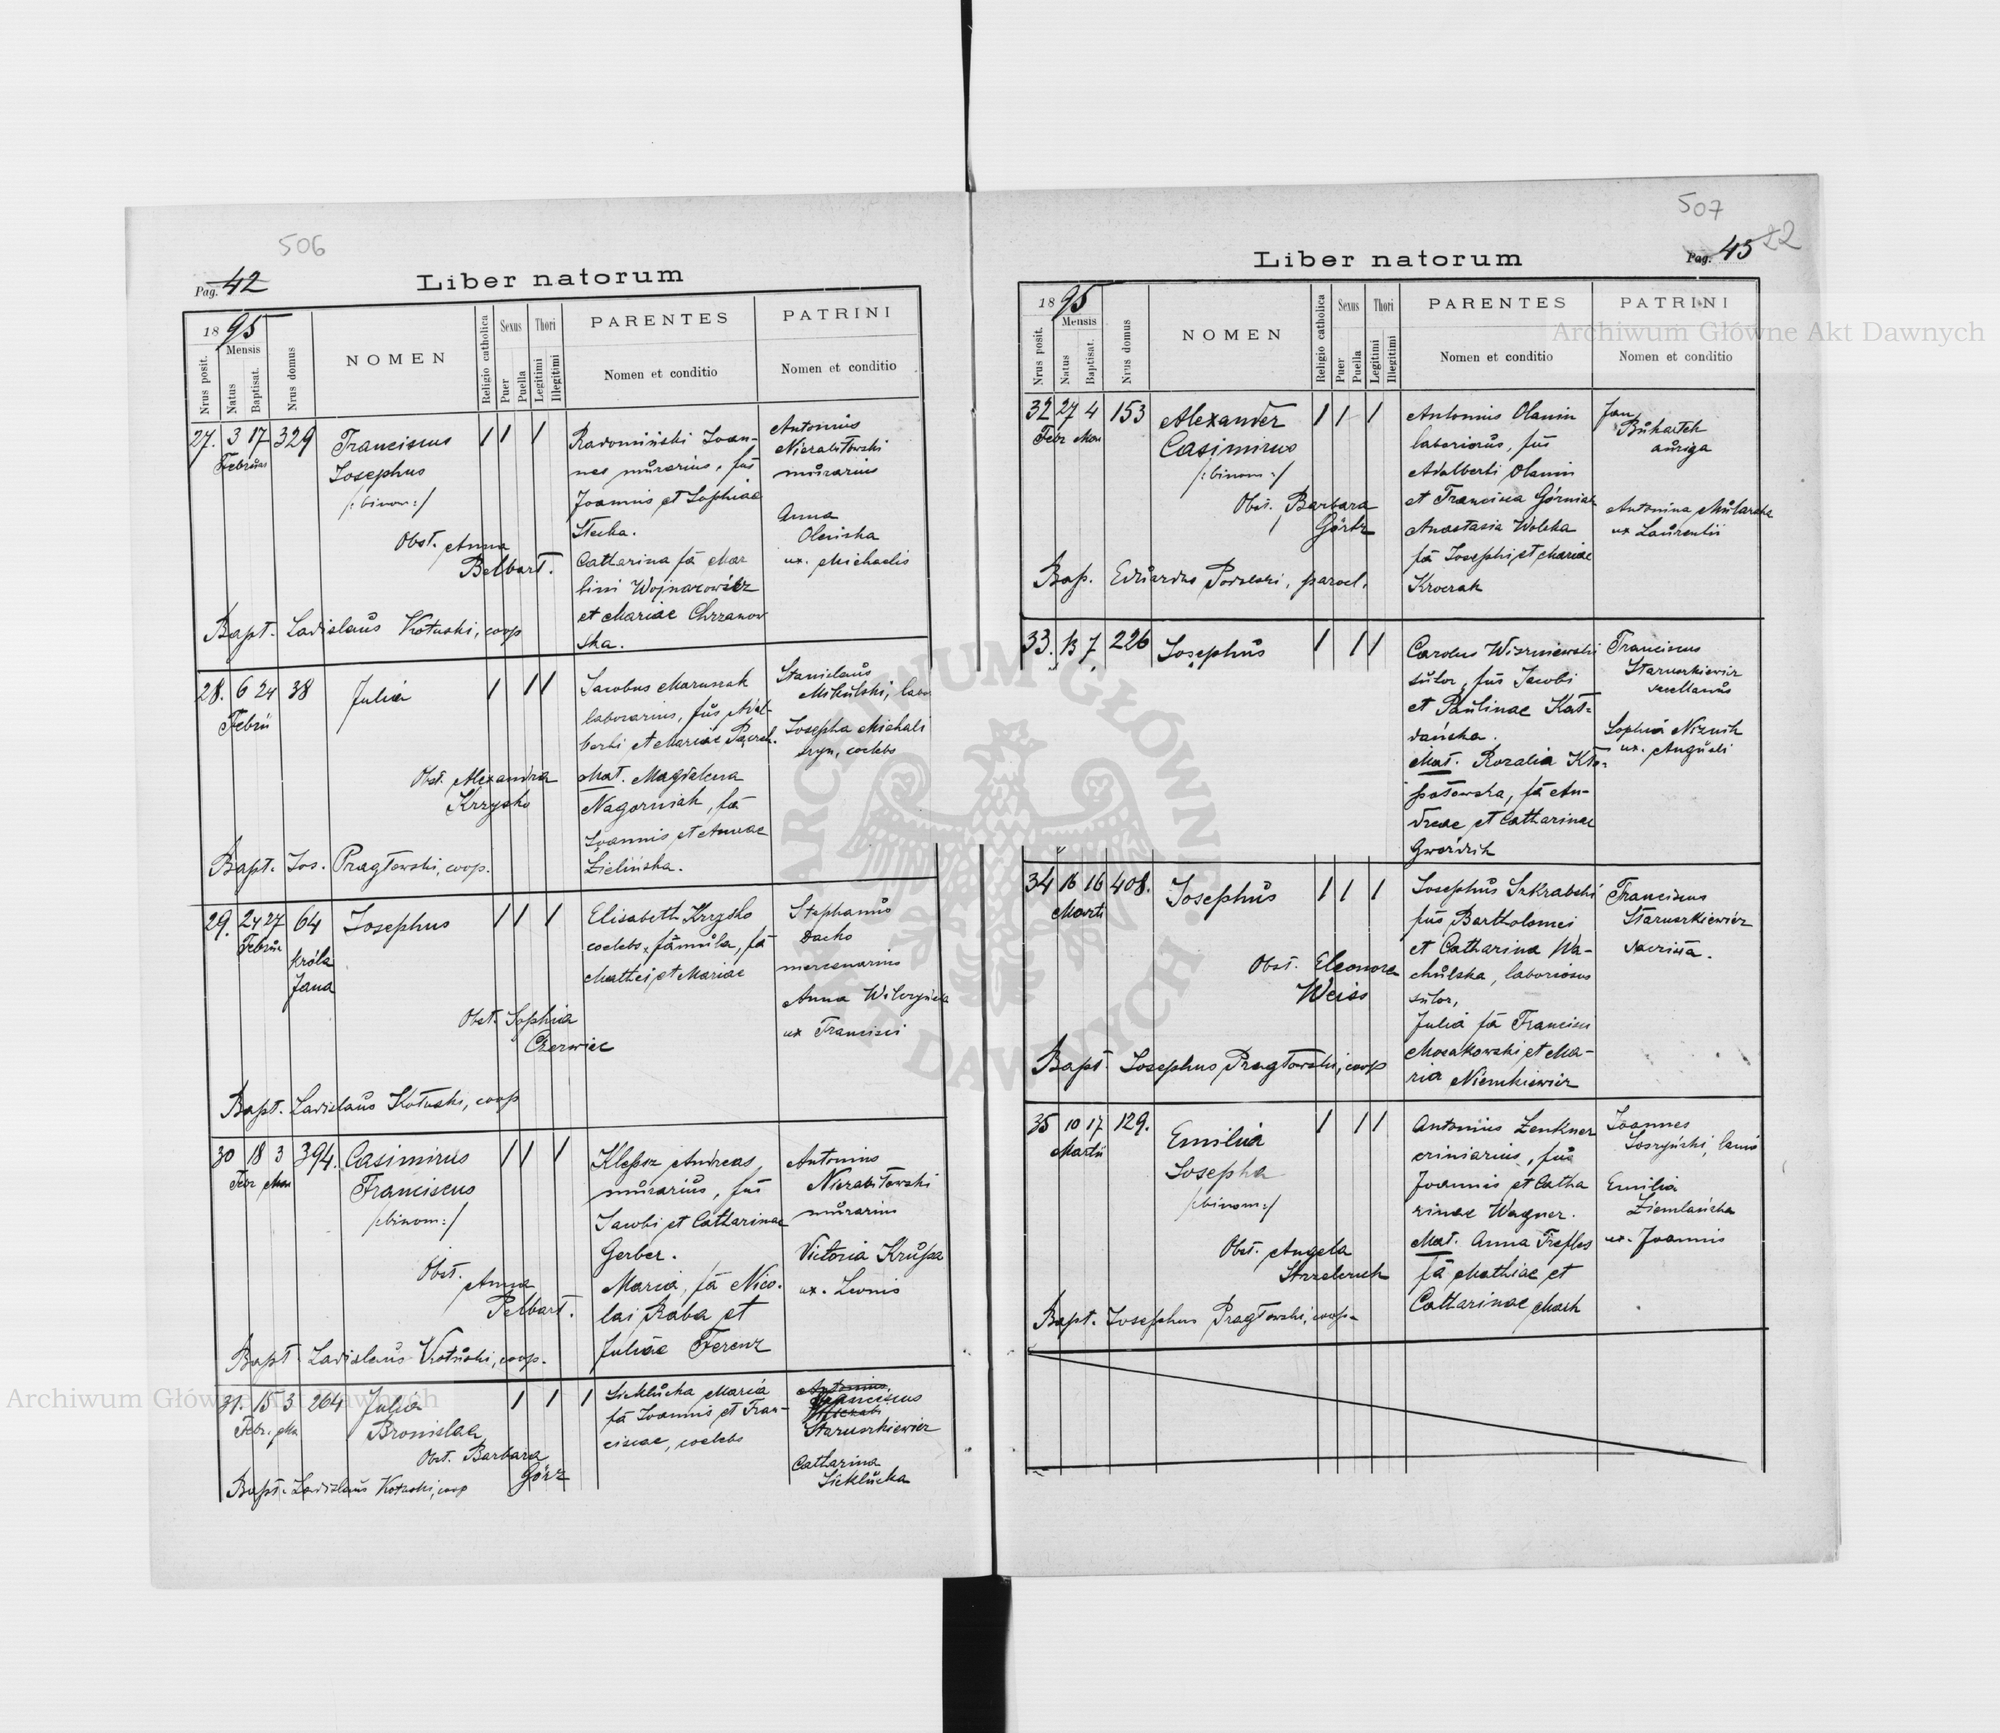 506
Pag. 42
Liber natorum
1895
Nrus posit.
Mensis
Natus
Baptisat.
Nrus domus
NOMEN
Religio catholica
Sexus
Puer
Puella
Thori
Legitimi
Illegitimi
PARENTES
Nomen et conditio
PATRINI
Nomen et conditio
27. 3 17 329
Februar
Franciscus
Josephus
/:binom:/
Obst. Anna
Belbart.
Bapt. Ladislaus Kotuski, coop
Radomiński Joan-
nes murarius, fus
Joannis et Sophiae
Stecka.
Catharina fa Mar
tini Wojnarowicz
et Mariae Chrzanow
ska.
Antonius
Niezabitowski
murarius
Anna
Olenicka
ux. Michaelis
28. 6 24 38
Febru
Julia
Obst. Alexandra
Krzysko
Bapt. Jos. Pragłowski, coop.
Jacobus Maruszak
laborarius, fus Adal-
berti et Mariae
Mat. Magdalena
Nagorniak, fa
Joannis et Annae
Zielińska.
Stanislaus
Mikulski, labo
Josepha Michali
szyn, coelebs
29. 24 27 64
Februar
króla
Jana
Josephus
Obst. Sophia
Czerwiec
Bapt. Ladislaus Kotuski, coop
Elisabeth Krzysko
coelebs, famula, fa
Mathei et Mariae
Stephanus
Dacko
mercenarius
Anna
ux Francisci
30 18 3 394.
Febr Mar
Casimirus
Franciscus
/:binom:/
Obst.
Anna
Pelbart.
Bapt Ladislaus Kotuski, coop.
Klepsz Andreas
murarius, fus
Jacobi et Catharinae
Gerber.
Maria, fa Nico-
lai Raba et
Juliae Ferenz
Antonius
Niezabitowski
murarius
Victoria Krupa
ux. Leonis
31. 15 3 264
Febr. Mar
Julia
Bronislaa
Obst. Barbara
Görz
Bapt. Ladislaus Kotuski, coop
Sieklucka Maria
fa Joannis et Fran-
ciscae, coelebs
Antonius
Franciscus
Staruszkiewicz
Catharina
Sieklucka
507
Pag. 45 22
Liber natorum
1895
Nrus posit.
Mensis
Natus
Baptisat.
Nrus domus
NOMEN
Religio catholica
Sexus
Puer
Puella
Thori
Legitimi
Illegitimi
PARENTES
Nomen et conditio
PATRINI
Nomen et conditio
32 27 4 153
Febr Mar
Alexander
Casimirus
/:binom:/
Obst. Barbara
Görtz
Bap. Eduardus Podolski, paroch.
Antonius Olanin
laboriosus, fus
Adalberti Olanin
et Francisca Górniak
Anastasia Wolska
fa Josephi et Mariae
Kroczak
Jan
Buhartek
auriga
Antonina Mularska
ux Laurentii
33. 13 7 226
Josephus
Carolus Wiszniewski
sutor, fus Jacobi
et Paulinae Kaź-
dańska.
Mat. Rozalia Kło-
potowska, fa An-
dreae et Catharinae
Gwoździk
Franciscus
Staruszkiewicz
Sophia Niznik
ux. Augusti
34 16 16 408.
Marti
Josephus
Obst. Eleonora
Weiss
Bapt. Josephus Pragłowski, coop
Josephus Szkrabski
fus Bartholomei
et Catharina Wa-
chulska, laboriosus
sutor,
Julia fa Francisci
Mosakowski et Ma-
ria Niemkiewicz
Franciscus
Staruszkiewicz
35 10 17 129.
Martii
Emilia
Josepha
/:binom:/
Obst. Angela
Strzelczuk
Bapt. Josephus Pragłowski, coop.
Antonius Zenkner
criniarius, fus
Joannis et Catha
rinae Wagner.
Mat. Anna Trefles
fa Mathiae et
Catharinae Mach
Joannes
Soszyński,
Emilia
Ziemlańska
ux. Joannis
Archiwum Główne Akt Dawnych
Archiwum Główne Akt Dawnych
ARCHIWUM GŁÓWNE AKT DAWNYCH